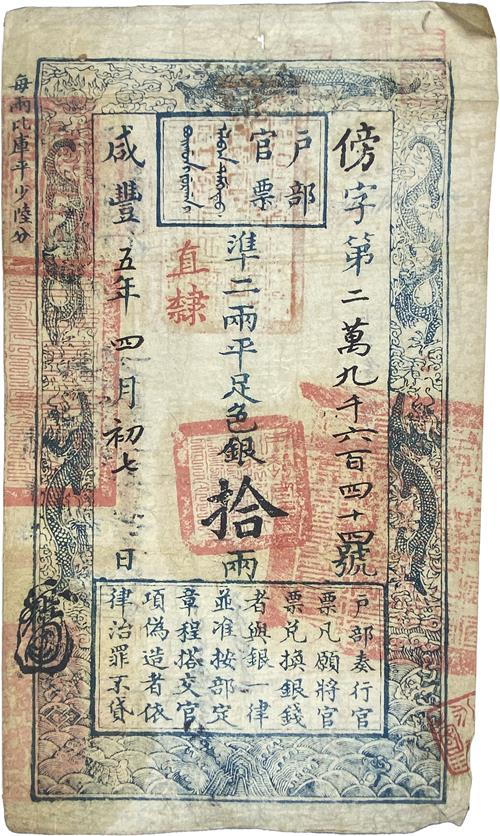 傍字第二萬九千六百四十四號
戶部
官票
準二兩平足色銀拾兩
直隸
咸豐五年四月初七日
戶部奏行官
票凡願將官
票兌換銀錢
者與銀一律
並准按部定
章程搭交官
項偽造者依
律治罪不貸
每兩比庫平少陸分